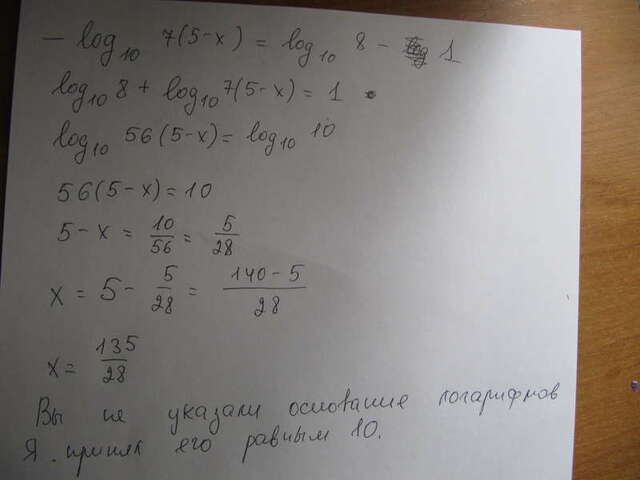 - log₁₀ 7(5-x) = log₁₀ 8 - 1
log₁₀ 8 + log₁₀ 7(5-x) = 1
log₁₀ 56(5-x) = log₁₀ 10
56(5-x) = 10
5 - x = 10/56 = 5/28
x = 5 - 5/28 = (140 - 5)/28
x = 135/28
Вы не указали основание логарифмов
Я принял его равным 10.